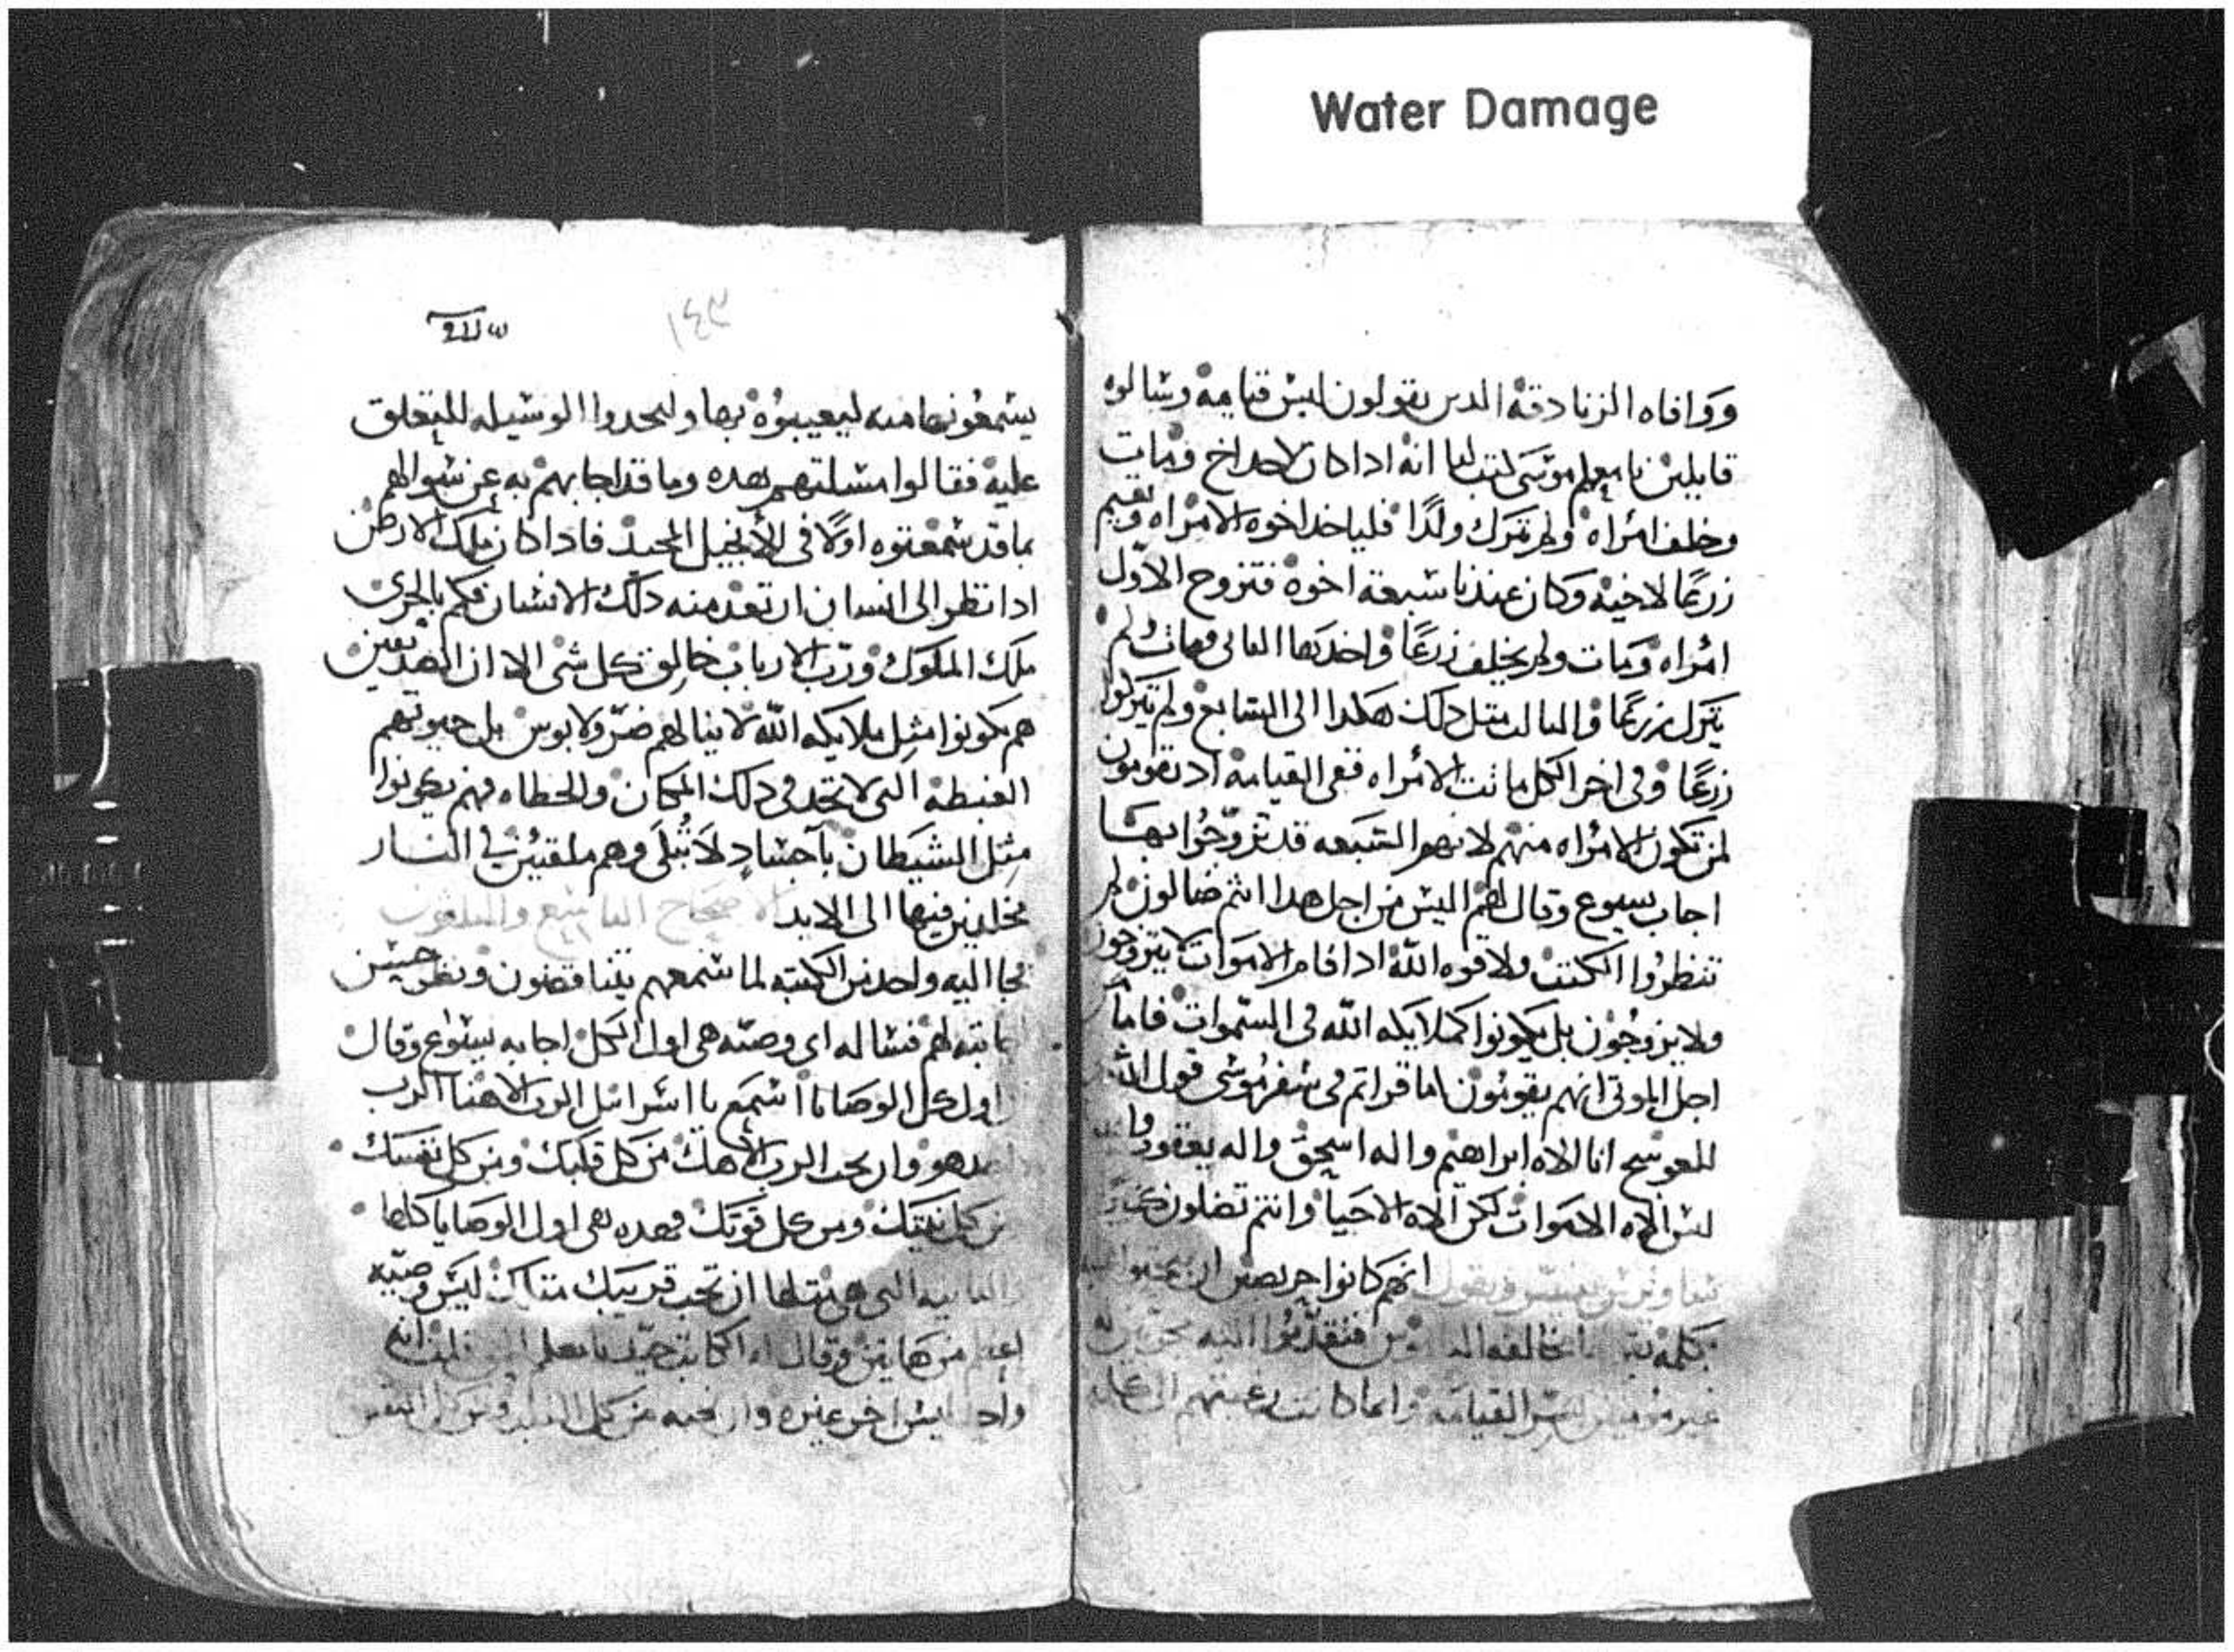 Water Damage
ووافاه الزنادقه الدين يقولون ليس قيامه وسالوه
قايلين يا معلم موسى كتب لنا انه ادا كان لاحد اخ ومات
وخلف امراه ولم يترك ولدًا فلياخد اخوه الامراه ويقيم
زرعًا لاخيه وكان عندنا سبعة اخوه فتزوج الاول
امراه ومات ولم يخلف زرعًا واخدها الثانى ومات ولم
يترك زرعًا والثالث مثل دلك هكدا الى السابع ولم يتركوا
زرعًا وفى اخر الكل ماتت الامراه ففى القيامه اد يقومون
لمن تكون الامراه منهم لانهوا السبعه قد تزوجوا بها
اجاب يسوع وقال لهم اليس من اجل هدا انتم ضالون لم
تنظروا الكتب ولا قوه الله ادا قام الاموات لا يتزوجون
ولا يزوجون بل يكونوا كملايكه الله فى السموات فاما
اجل الموتى انهم يقومون اما قراتم فى سفر موسى قول الله
للعوسج انا الاه ابراهيم واله اسحق واله يعقوب
ليس الاه الاموات لكن الاه الاحيا وانتم تضلون
ويقول انهم كانوا حريصين ان
بكلمه فتقدموا اليه
غير القيامه وانما كانت رغبتهم الى كلمه
١٤٣
يسمعونها منه ليعيبوه بها وليجدوا الوسيله للتعلق
عليه فقالوا مسلتهم هده وما قد اجابهم به عن سوالهم
بما قد سمعتوه اولًا فى الأنجيل المجيد فادا كان ملك الارض
ادا نظر الى انسان ارتعد منه دلك الانسان فكم بالحرى
ملك الملوك ورب الارباب خالق كل شى الا ان الصديقين
هم يكونوا مثل ملايكه الله لا ينالهم ضرّ ولا بوس بل حيوتهم
الغبطه التى لا تحد فى دلك المكان والخطاه فهم يكونوا
مثل الشيطان بآجسادٍ لا تُبلَى وهم ملقيين فى النار
مخلدين فيها الى الابد الاصحاح التاسع والتلتون
فجا اليه واحد من الكتبه لما سمعهم يتناقضون ونظر حسن
اجابته لهم فساله اى وصيه هى اول الكل اجابه يسوع وقال
اول كل الوصايا اسمع يا اسرائيل الرب الاهنا الرب
هو وان تحب الرب الاهك من كل قلبك ومن كل نفسك
من كل نيتك ومن كل قوتك فهده هى اول الوصايا كلها
والثانيه التى هى مثلها ان تحب قريبك مثلك ليس وصيه
اعظم من هاتين وقال له الكاتب جيّد يا معلم انه
واحد ليس اخر غيره وان تحبه من كل القلب ومن كل النفس